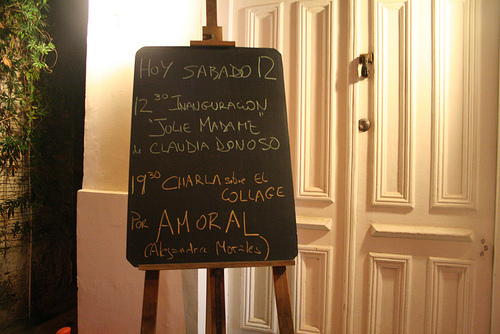 HOY SABADO 12
12 30 INAUGURACION
"JOLIE MADAME"
de CLAUDIA DONOSO
19 30 CHARLA sobre EL
COLLAGE
POR AMORAL
(Alejandra Morales)